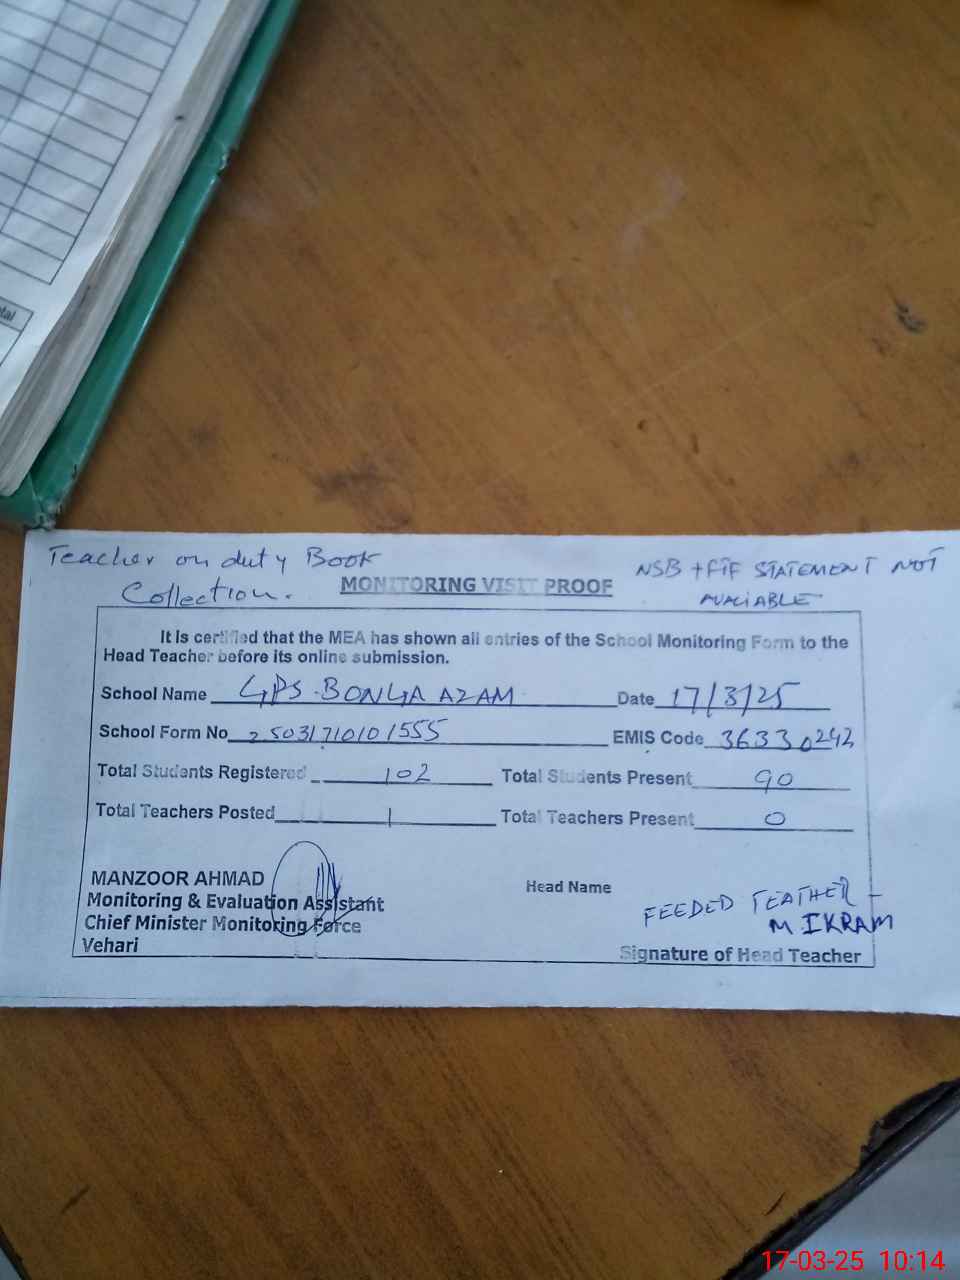 tal
Teacher on duty Book
Collection.
NSB + FTF STATEMENT NOT
AVALIABLE
MONITORING VISIT PROOF
It is certified that the MEA has shown all entries of the School Monitoring Form to the
Head Teacher before its online submission.
School Name GPS BONGA AZAM Date 17/3/25
School Form No 25031710101555 EMIS Code 36330242
Total Students Registered 102 Total Students Present 90
Total Teachers Posted 1 Total Teachers Present 0
MANZOOR AHMAD
Monitoring & Evaluation Assistant
Chief Minister Monitoring Force
Vehari
Head Name
FEEDED TEATHER -
M IKRAM
Signature of Head Teacher
17-03-25 10:14